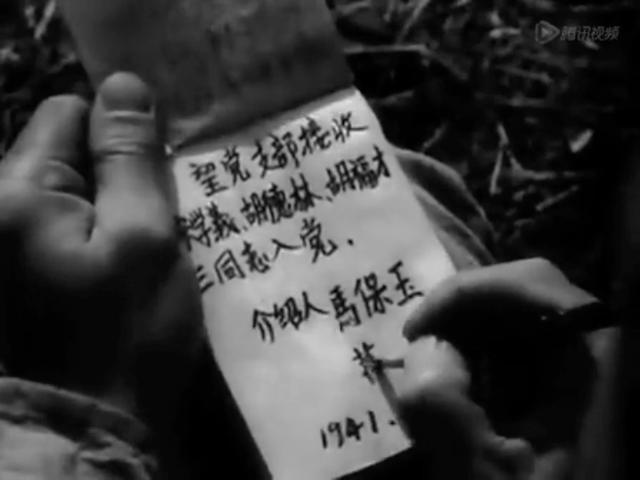 腾讯视频
望党支部接收
学義、胡德林、胡福才
三同志入党.
介绍人 馬保玉
1941.